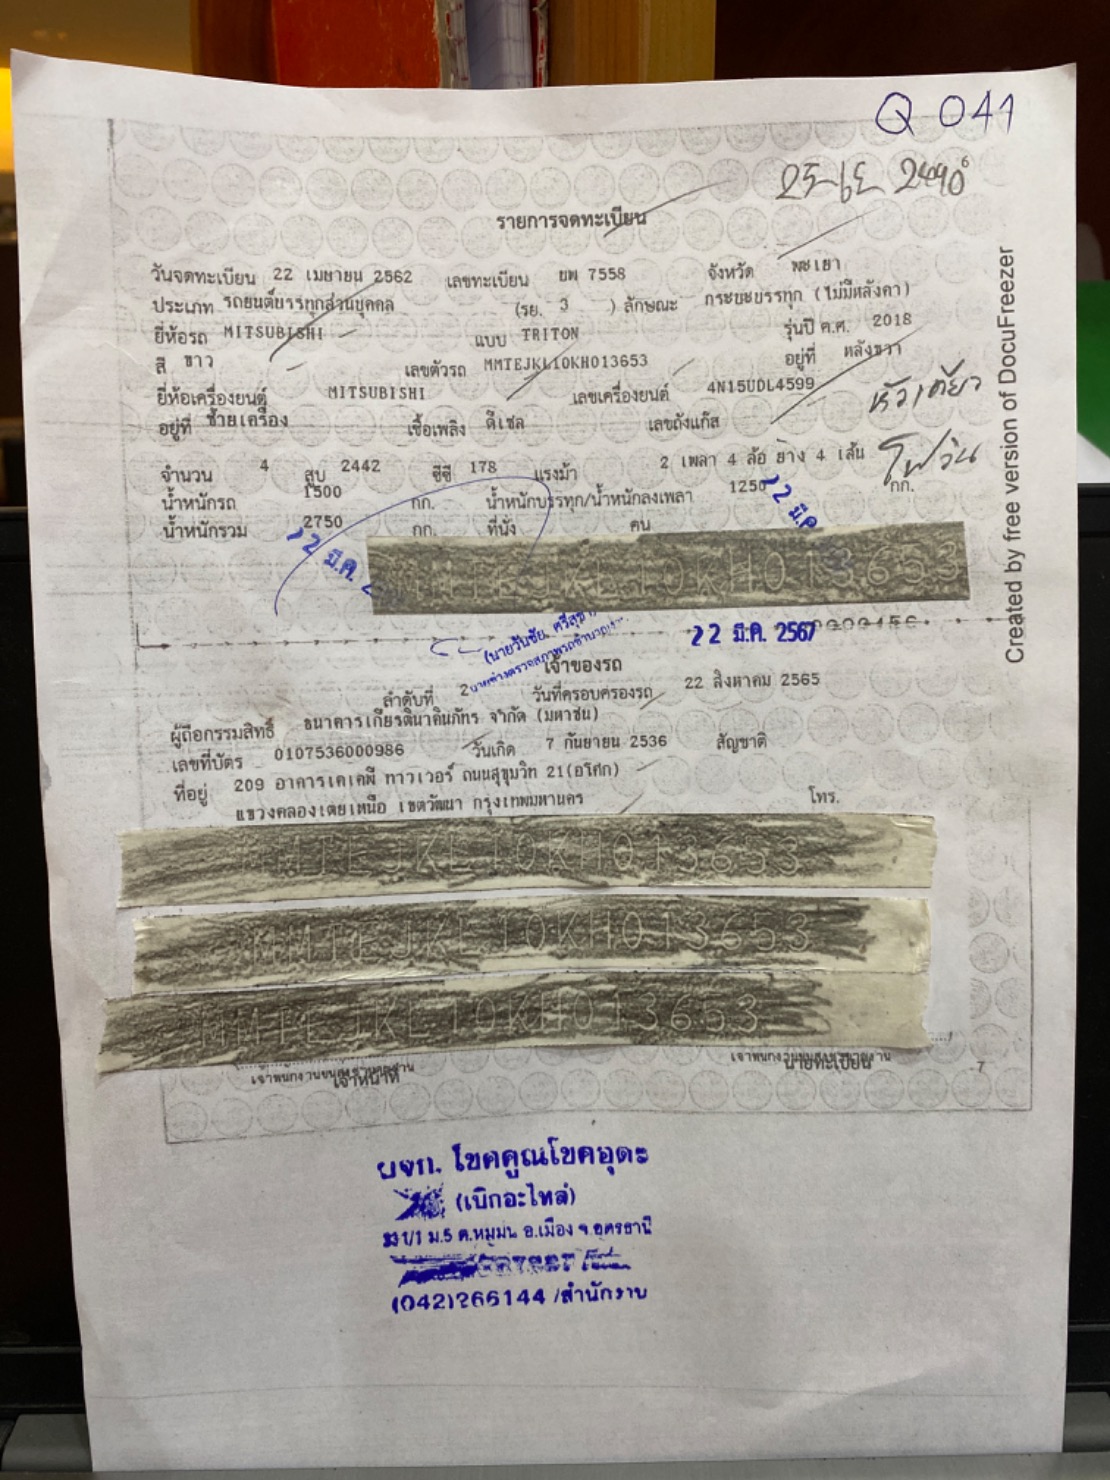 Q 041
2490
รายการจดทะเบียน
วันจดทะเบียน 22 เมษายน 2562 เลขทะเบียน ยพ 7558 จังหวัด พะเยา
ประเภท รถยนต์บรรทุกส่วนบุคคล (รย. 3 ) ลักษณะ กระบะบรรทุก (ไม่มีหลังคา)
ยี่ห้อรถ MITSUBISHI แบบ TRITON รุ่นปี ค.ศ. 2018
สี ขาว เลขตัวรถ MMTEJKL10KH013653 อยู่ที่ หลังขวา
ยี่ห้อเครื่องยนต์ MITSUBISHI เลขเครื่องยนต์ 4N15UDL4599
หัวเดียว
อยู่ที่ ซ้ายเครื่อง เชื้อเพลิง ดีเซล เลขถังแก๊ส
โฟวิน
จำนวน 4 สูบ 2442 ซีซี 178 แรงม้า 2 เพลา 4 ล้อ ยาง 4 เส้น
น้ำหนักรถ 1500 กก. น้ำหนักบรรทุก/น้ำหนักลงเพลา 1250 กก.
น้ำหนักรวม 2750 กก. ที่นั่ง คน
22 มี.ค.
22 มี.ค.
MMTEJKL10KH013653
(นายวันชัย ศรีสุชา)
22 มี.ค. 2567
เจ้าของรถ
ลำดับที่ 2 วันที่ครอบครองรถ 22 สิงหาคม 2565
ผู้ถือกรรมสิทธิ์ ธนาคารเกียรตินาคินภัทร จำกัด (มหาชน)
เลขที่บัตร 0107536000986 วันเกิด 7 กันยายน 2536 สัญชาติ
ที่อยู่ 209 อาคารเคเคพี ทาวเวอร์ ถนนสุขุมวิท 21(อโศก)
แขวงคลองเตยเหนือ เขตวัฒนา กรุงเทพมหานคร โทร.
MMTEJKL10KH013653
MMTEJKL10KH013653
MMTEJKL10KH013653
เจ้าหน้าที่ นายทะเบียน
7
ผจก. โชคคูณโชคอุดร
(เบิกอะไหล่)
331/1 ม.5 ต.หมูม่น อ.เมือง จ.อุดรธานี
(042)266144 /สำนักงาน
Created by free version of DocuFreezer